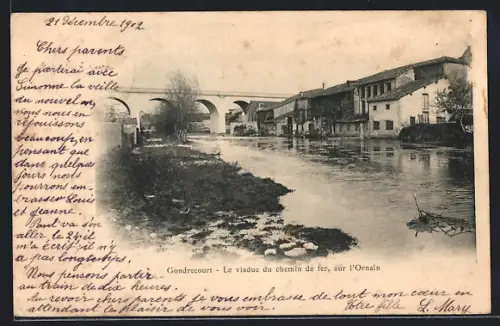 21 Décembre 1902
Chers parents
Je partirai avec
Simonne la veille
du nouvel an
nous nous en
réjouissons
beaucoup, en
pensant que
dans quelques
jours nous
pourrons em-
brasser Louis
et Jeanne.
Paul va s'en
aller le 24, il
m'a écrit il n'y
a pas longtemps.
Nous pensons partir
au train de dix heures.
Au revoir chers parents je vous embrasse de tout mon cœur en
attendant le plaisir de vous voir.
Votre fille L. Mary
Gondrecourt - Le viaduc du chemin de fer, sur l'Ornain